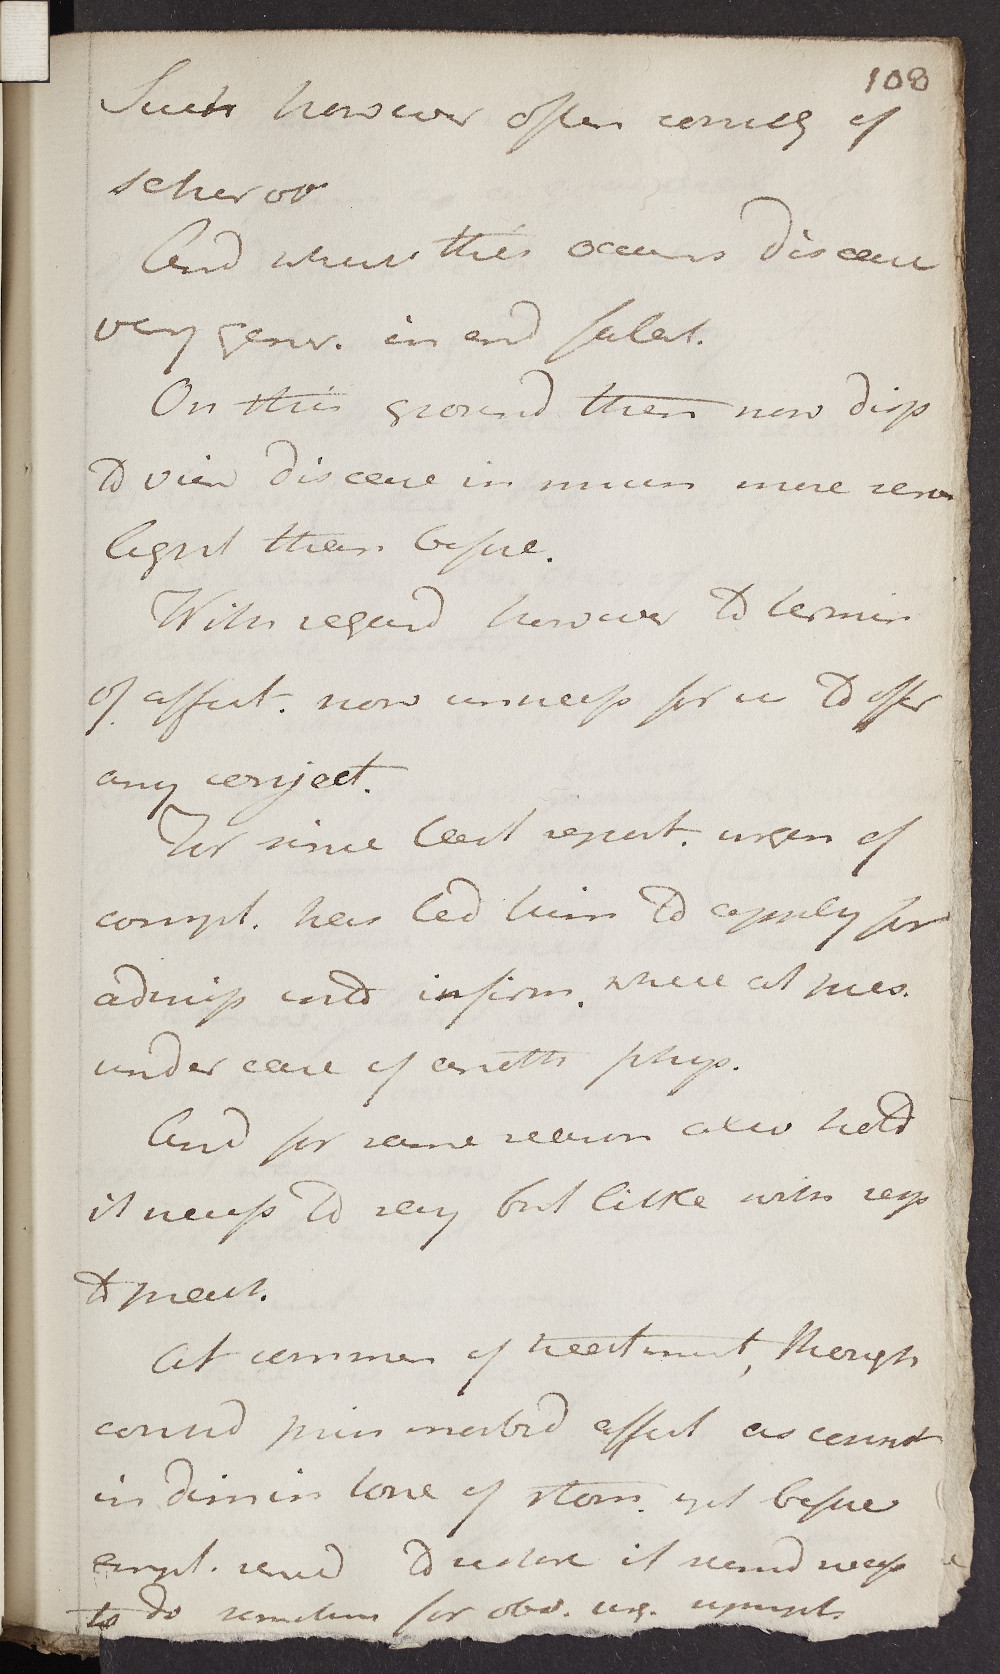 108
Such however often conseq of
scherov
And where this occurs disease
very gener. in end fatal.
On this ground then now disp
to view disease in much more serev
light than before.
With regard however to termin
of affect. now unnecess for me to offer
any conject.
For since last report. urgen of
compl. has led him to apply for
admiss into infirm. where at pres.
under care of anoth phys.
And for same reason also hold
it necess to say but little with resp
to pract.
At commen of treatment, though
consid prim morbid affect as consist
in dimin tone of stom. yet before
empl. remed to restore it seemd necess
to do somethin for obv. urg. sympt.